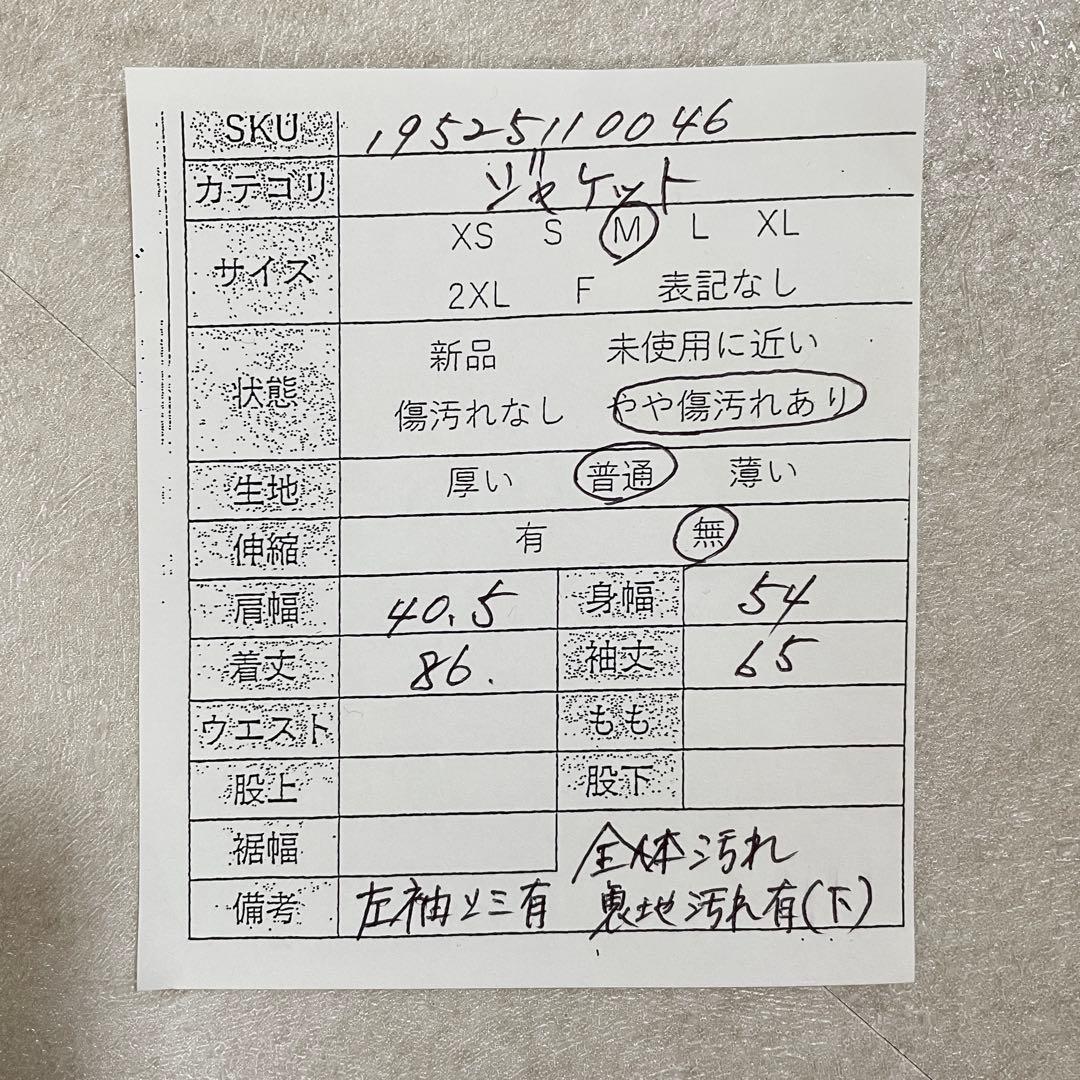 SKU 19525110046
カテゴリ ジャケット
サイズ XS S M L XL
2XL F 表記なし
状態 新品 未使用に近い
傷汚れなし やや傷汚れあり
生地 厚い 普通 薄い
伸縮 有 無
肩幅 40.5 身幅 54
着丈 86. 袖丈 65
ウエスト もも
股上 股下
裾幅 全体汚れ
備考 左袖シミ有 裏地汚れ有(下)